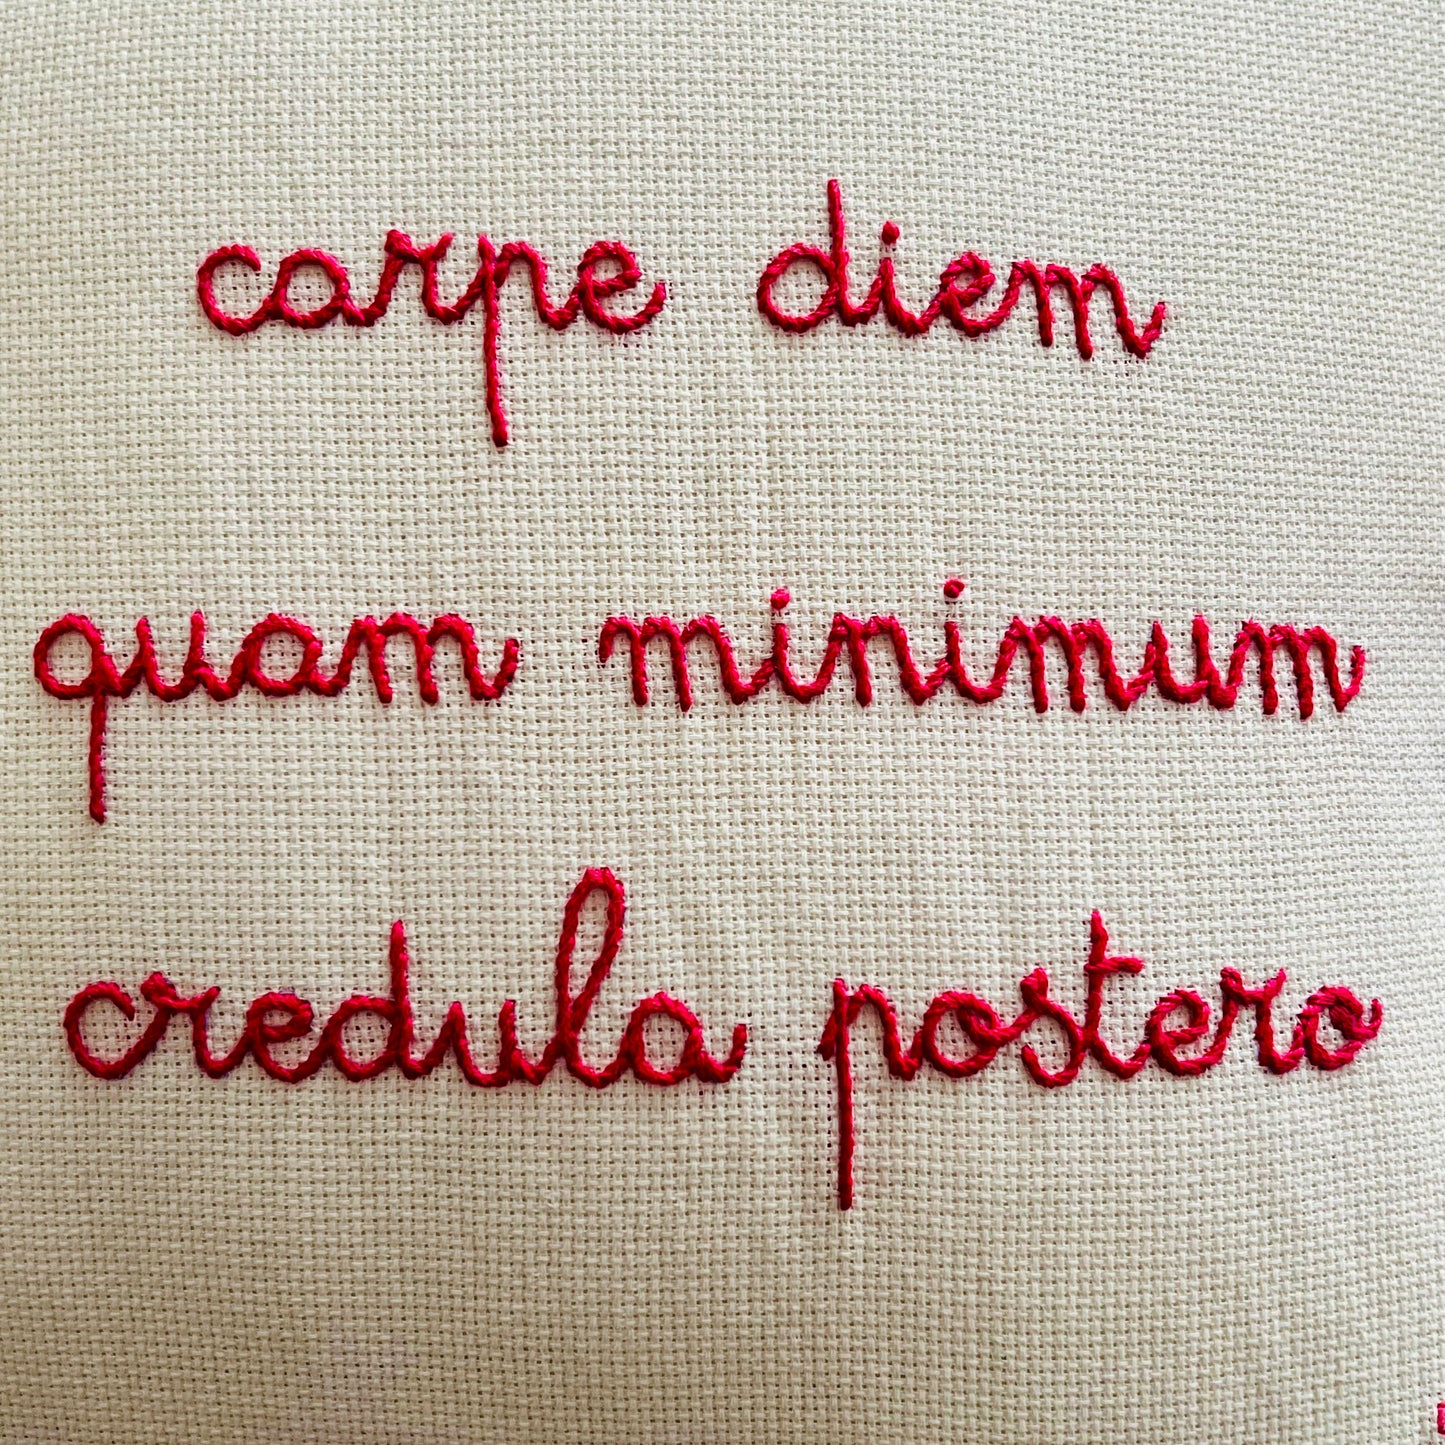 carpe diem
quam minimum
credula postero